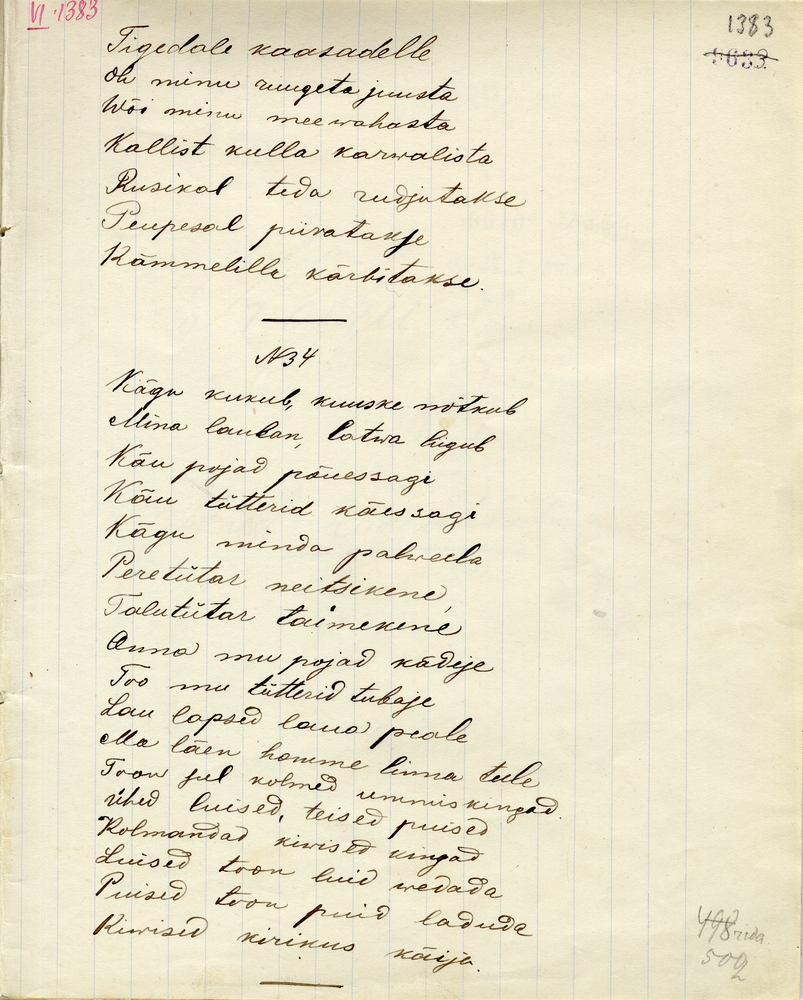 VI. 1383
1383
5683
Tigedale kaasadelle
Oh minu ruugeta juusta
Wõi minu meewahasta
Kallist kulla karwalista
Rusikal teda rudjutakse
Peupesal püratakse
Kämmelille kärbitakse.
N34
Kägu kukub, kuuske nõtkub
Mina laulan, latwa liigub
Käu pojad põuessagi
Käu tütterid käessagi
Kägu minda palweela
Peretütar neitsikene,
Talutütar taimekene
Anna mu pojad kädije
Too mu tütterid tubaje
Lau lapsed laua peale
Ma läen homme linna teele
Toon sul kolmed ummiskingad.
Ühed luised, teised puised
Kolmandad kiwised kingad
Luised toon luid wedada
Puised toon puid laduda
Kiwised kirikus käija.
498 rida
502